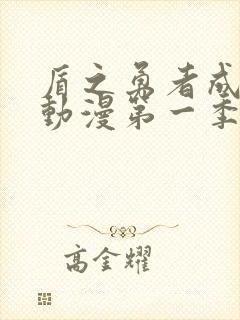 盾之勇者成
動漫第一季
高金耀